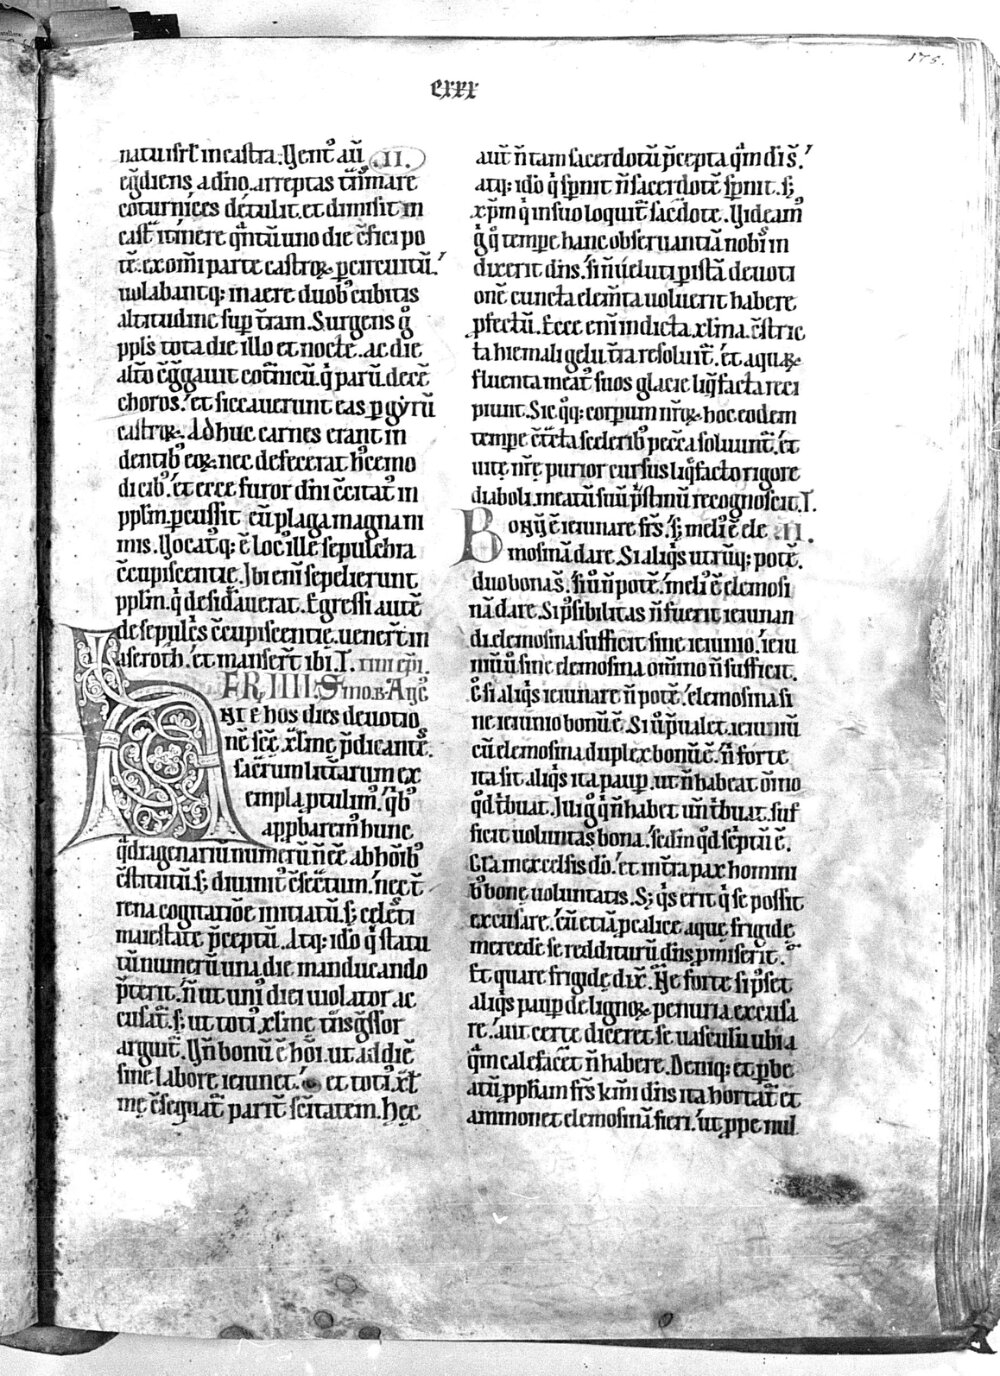 175.
cxxx
natu isrł in castra. Vent᷒ aū .II.
eg̃diens a dño. arreptas t̃nˢ mare
coturnices detulit. et dimisit in
cast̃ itinere q̃ntū uno die c̃fici po
tē. ex om̄i parte castroꝝ p̲ circuitū.
uolabantq; in aere duob᷒ cubitis
altitudine sup̲ t̃ram. Surgens g̊
ppl̃s tota die illo et nocte. ac die
alt̃o c̃g̃gauit cot̃nicū. q̇ parū. decē
choros. et siccauerunt eas p̲ gẏrū
castroꝝ. Adhuc carnes erant in
dentib᷒ eoꝝ. nec defecerat h᷒cemo
di cib᷒. et ecce furor dn̄i c̄citat᷒ in
pplm̄. p̲cussit eū plaga magna ni
mis. Vocat᷒q; ē loc᷒ ille sepulchra
c̄cupiscentię. Ibi eni sepelierunt
pplm̄. q̇ desid̾auerat. Egressi autē
de sepulc̃s c̄cupiscentię. uener̄t in
aseroth. et manser̄t ibi. I.
FR IIII. Smo. B. Aug̃.
Ante hos dies deuotio
nē sc̄ę xl̄me p̃dicantes.
sac̃rum litt̃arum ex
empla p̲tulim᷒. q̇b᷒
app̲barem᷒ hunc
q̃dragenariū numerū n̄ eē ab hōib᷒
c̄stitutū. s; diuinit᷒ c̄sec̃tum. nec t̃
rena cogitatiōe initiatū. s; celesti
maiestate p̃ceptū. Atq; idō q̇ statu
tū numerū una die manducando
p̃terit. n̄ ut uni᷒ diei uiolator ac
cusat̃. s; ut toti᷒ xl̄me t̃nsg̃ssor
arguit̃. Vn̄ bonū ē hōi. ut ad diē
sine labore ieiunet. et toti᷒ xl̄
mę c̄seqnat̃ parit̃ sc̄itatem. Hęc
aut̃ n̄ tam sacerdotū p̃cepta q̃m di s̄.
atq; idō q̇ sp̲nit n̄ sacerdotē sp̲nit. s;
xp̄m q̇ in suo loquit̃ sac̃dote. Videam᷒
g̊ q̊ tempe hanc obseruantiā nob᷒ in
dixerit dn̄s.
onē cuncta elem̄ta uoluerit habere
p̲fectū. Ecce eni indicta xl̄ma. c̄stric
ta hiemali gelu t̃ra resoluit̃. et aquaꝝ
fluenta meat᷒ suos glacie liq̃facta reci
piunt. Sic q̊q; corpum nr̄oꝝ hoc eodem
tempe c̄creta sceleri᷒b pecc̄a soluunt̃. et
uitę nr̄ę purior cursus liq̃facto rigore
diaboli. meatū suū p̃stinū recognoscit. I.
Bonū ē ieiunare frs̄. s; meli᷒ ē ele .II.
mosinā dare. Si aliq̇s utrūq; potē.
duo bona s̄. si ů n̄ potē. meli᷒ ē elemosi
nā dare. Si possibilitas n̄ fuerit ieiunan
di elemosina sufficit sine ieiunio. ieiu
niū ů sine elemosina om̄ino n̄ sufficit.
Ē si aliq̇s ieiunare n̄ potē. elemosina si
ne ieiunio bonū ē. Si ů p̃ualet. ieiuniū
cū elemosina duplex bonū ē. n̄ forte
ita sit aliq̇s ita paup̲. ut n̄ habeat om̄ino
q̊d t̃buat. Iuig᷒ q̇ n̄ habet un̄ t̃buat. suf
ficit uoluntas bona. sed in q̊d sc̃ptū ē.
Gła in excelsis dō. et in t̃ra pax homini
b᷒ bonę uoluntatis. S; q̇s erit q̇ se possit
excusare. cū etiā p̲ calice aque frigidę
mercedē se redditurū dn̄s p̲miserit.
Et quare frigidę dix̄. Ne forte si posset
aliq̇s paup̲ de lignoꝝ penuria excusa
re. aut certe diceret se uasculū ubi a
q̃m calefacēt n̄ habere. Deniq; et p̲ be
atū p̲pham frs̄ kmi dn̄s ita hortat̃ et
ammonet elemosinā fieri. ut p̲pe nul